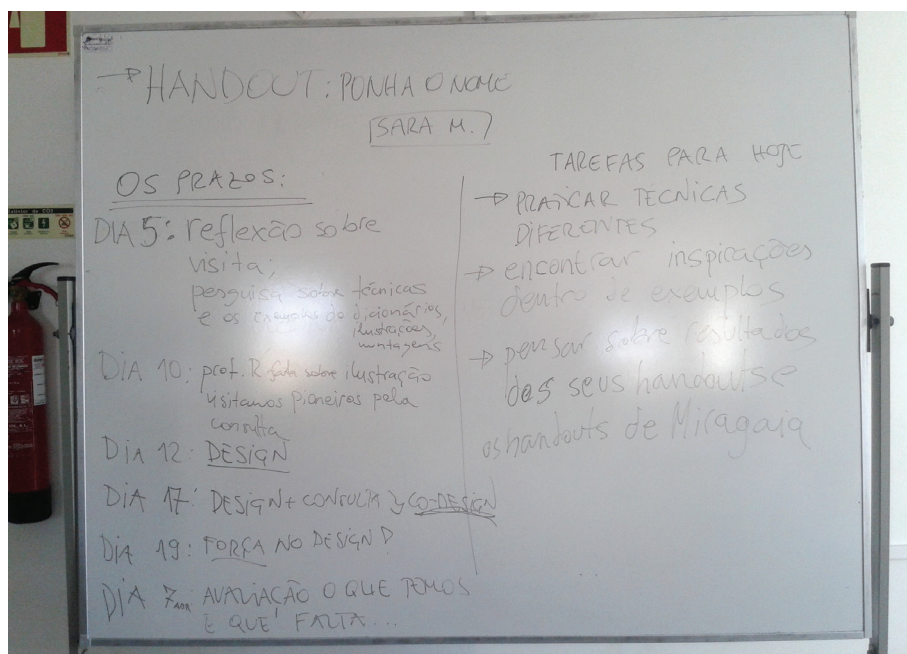 → HANDOUT: PONHA O NOME
SARA M.
OS PRAZOS:
DIA 5: reflexão sobre
visita;
pesquisa sobre técnicas
e os exemplos de dicionários,
ilustrações,
montagens
DIA 10: prof. R. fala sobre ilustração
visitamos Pioneiros pela
consulta
DIA 12: DESIGN
DIA 17: DESIGN + CONSULTA CO-DESIGN
DIA 19: FORÇA NO DESIGN!
DIA 7 ABR AVALIAÇÃO O QUE TEMOS
E QUE FALTA...
TAREFAS PARA HOJE
→ PRATICAR TÉCNICAS
DIFERENTES
→ encontrar inspirações
dentro de exemplos
→ pensar sobre resultados
dos seus handouts e
os handouts de Miragaia